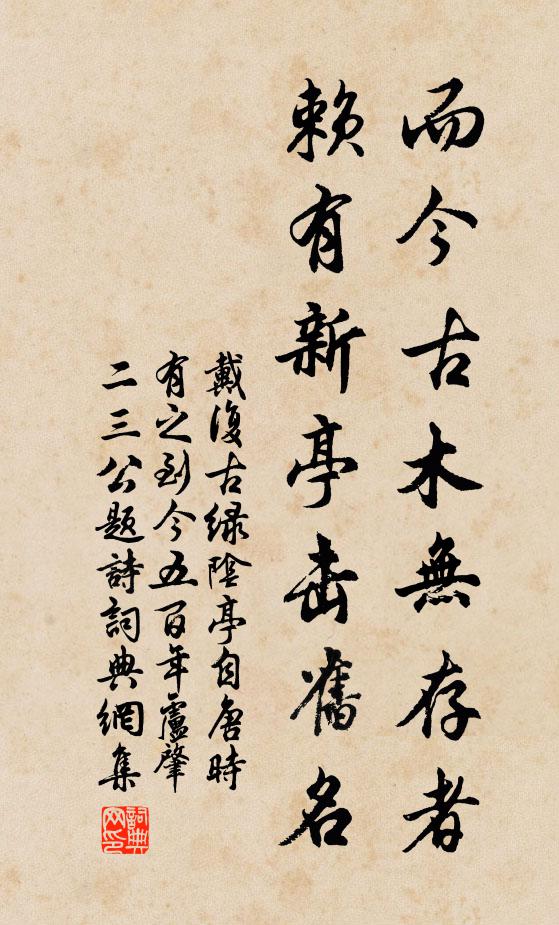 而今古木無存者
賴有新亭舊名
戴復古緑陰亭自唐時
有之到今五百年盧肇
二三公題詩詞典網集
詞典
网印